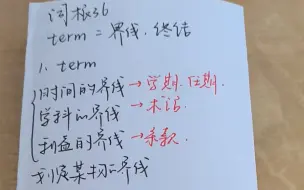 词根36
term = 界线、终结
1. term
时间的界线→学期、任期
学科的界线→术语
利益的界线→条款
划定某物的界线